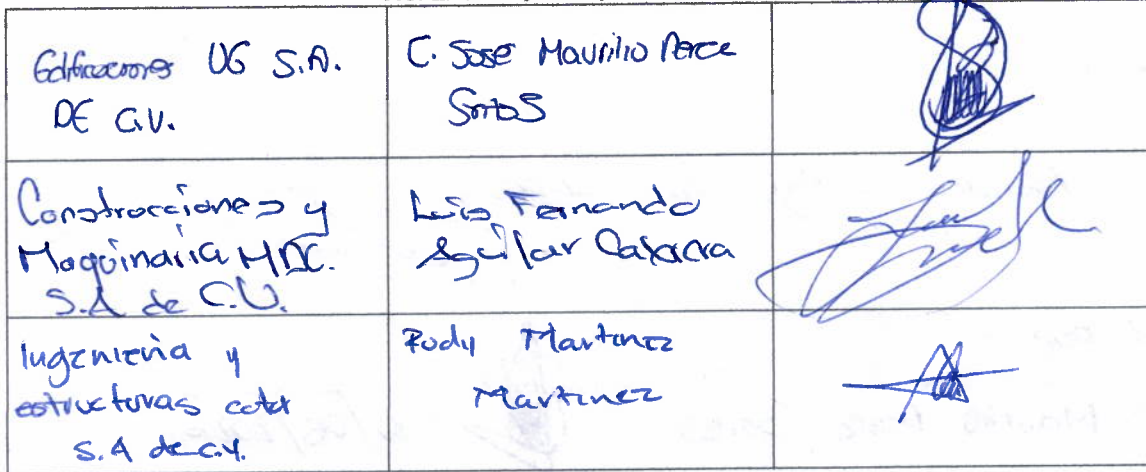 Edificaciones UG S.A.
DE C.V.
C. José Maurilio
Santos
Construcciones y
Maquinaria MDC.
S.A de C.V.
Luis Fernando
Aguilar
Ingeniería y
estructuras
S.A de C.V.
Rudy Martinez
Martinez